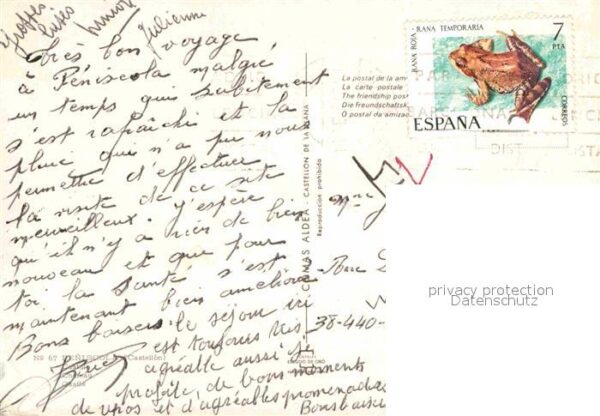 Grosses
bises
Julienne
Très bon voyage
à Péniscola malgré
un temps qui subitement
s'est rafraîchi et la
pluie qui n'a pu nous
permettre d'effectuer
la visite de ce site
merveilleux. J'espère
qu'il n'y a rien de bien
nouveau et que pour
toi la santé s'est
maintenant bien améliorée
Bons baisers le séjour ici
est toujours très
agréable aussi je
profite de bons moments
de repos et d'agréables promenades
Bons baisers
Nº 67 PEÑISCOLA (Castellón)
COMAS ALDEA - CASTELLON DE LA PLANA
Reproduccion prohibida
La postal de la am
La carte postale
The friendship post
Die freundschaftsk
O postal da amizad
RANA ROJA - RANA TEMPORARIA
7
PTA
CORREOS
ESPAÑA
Mme
Rue
38-440-
privacy protection
Datenschutz